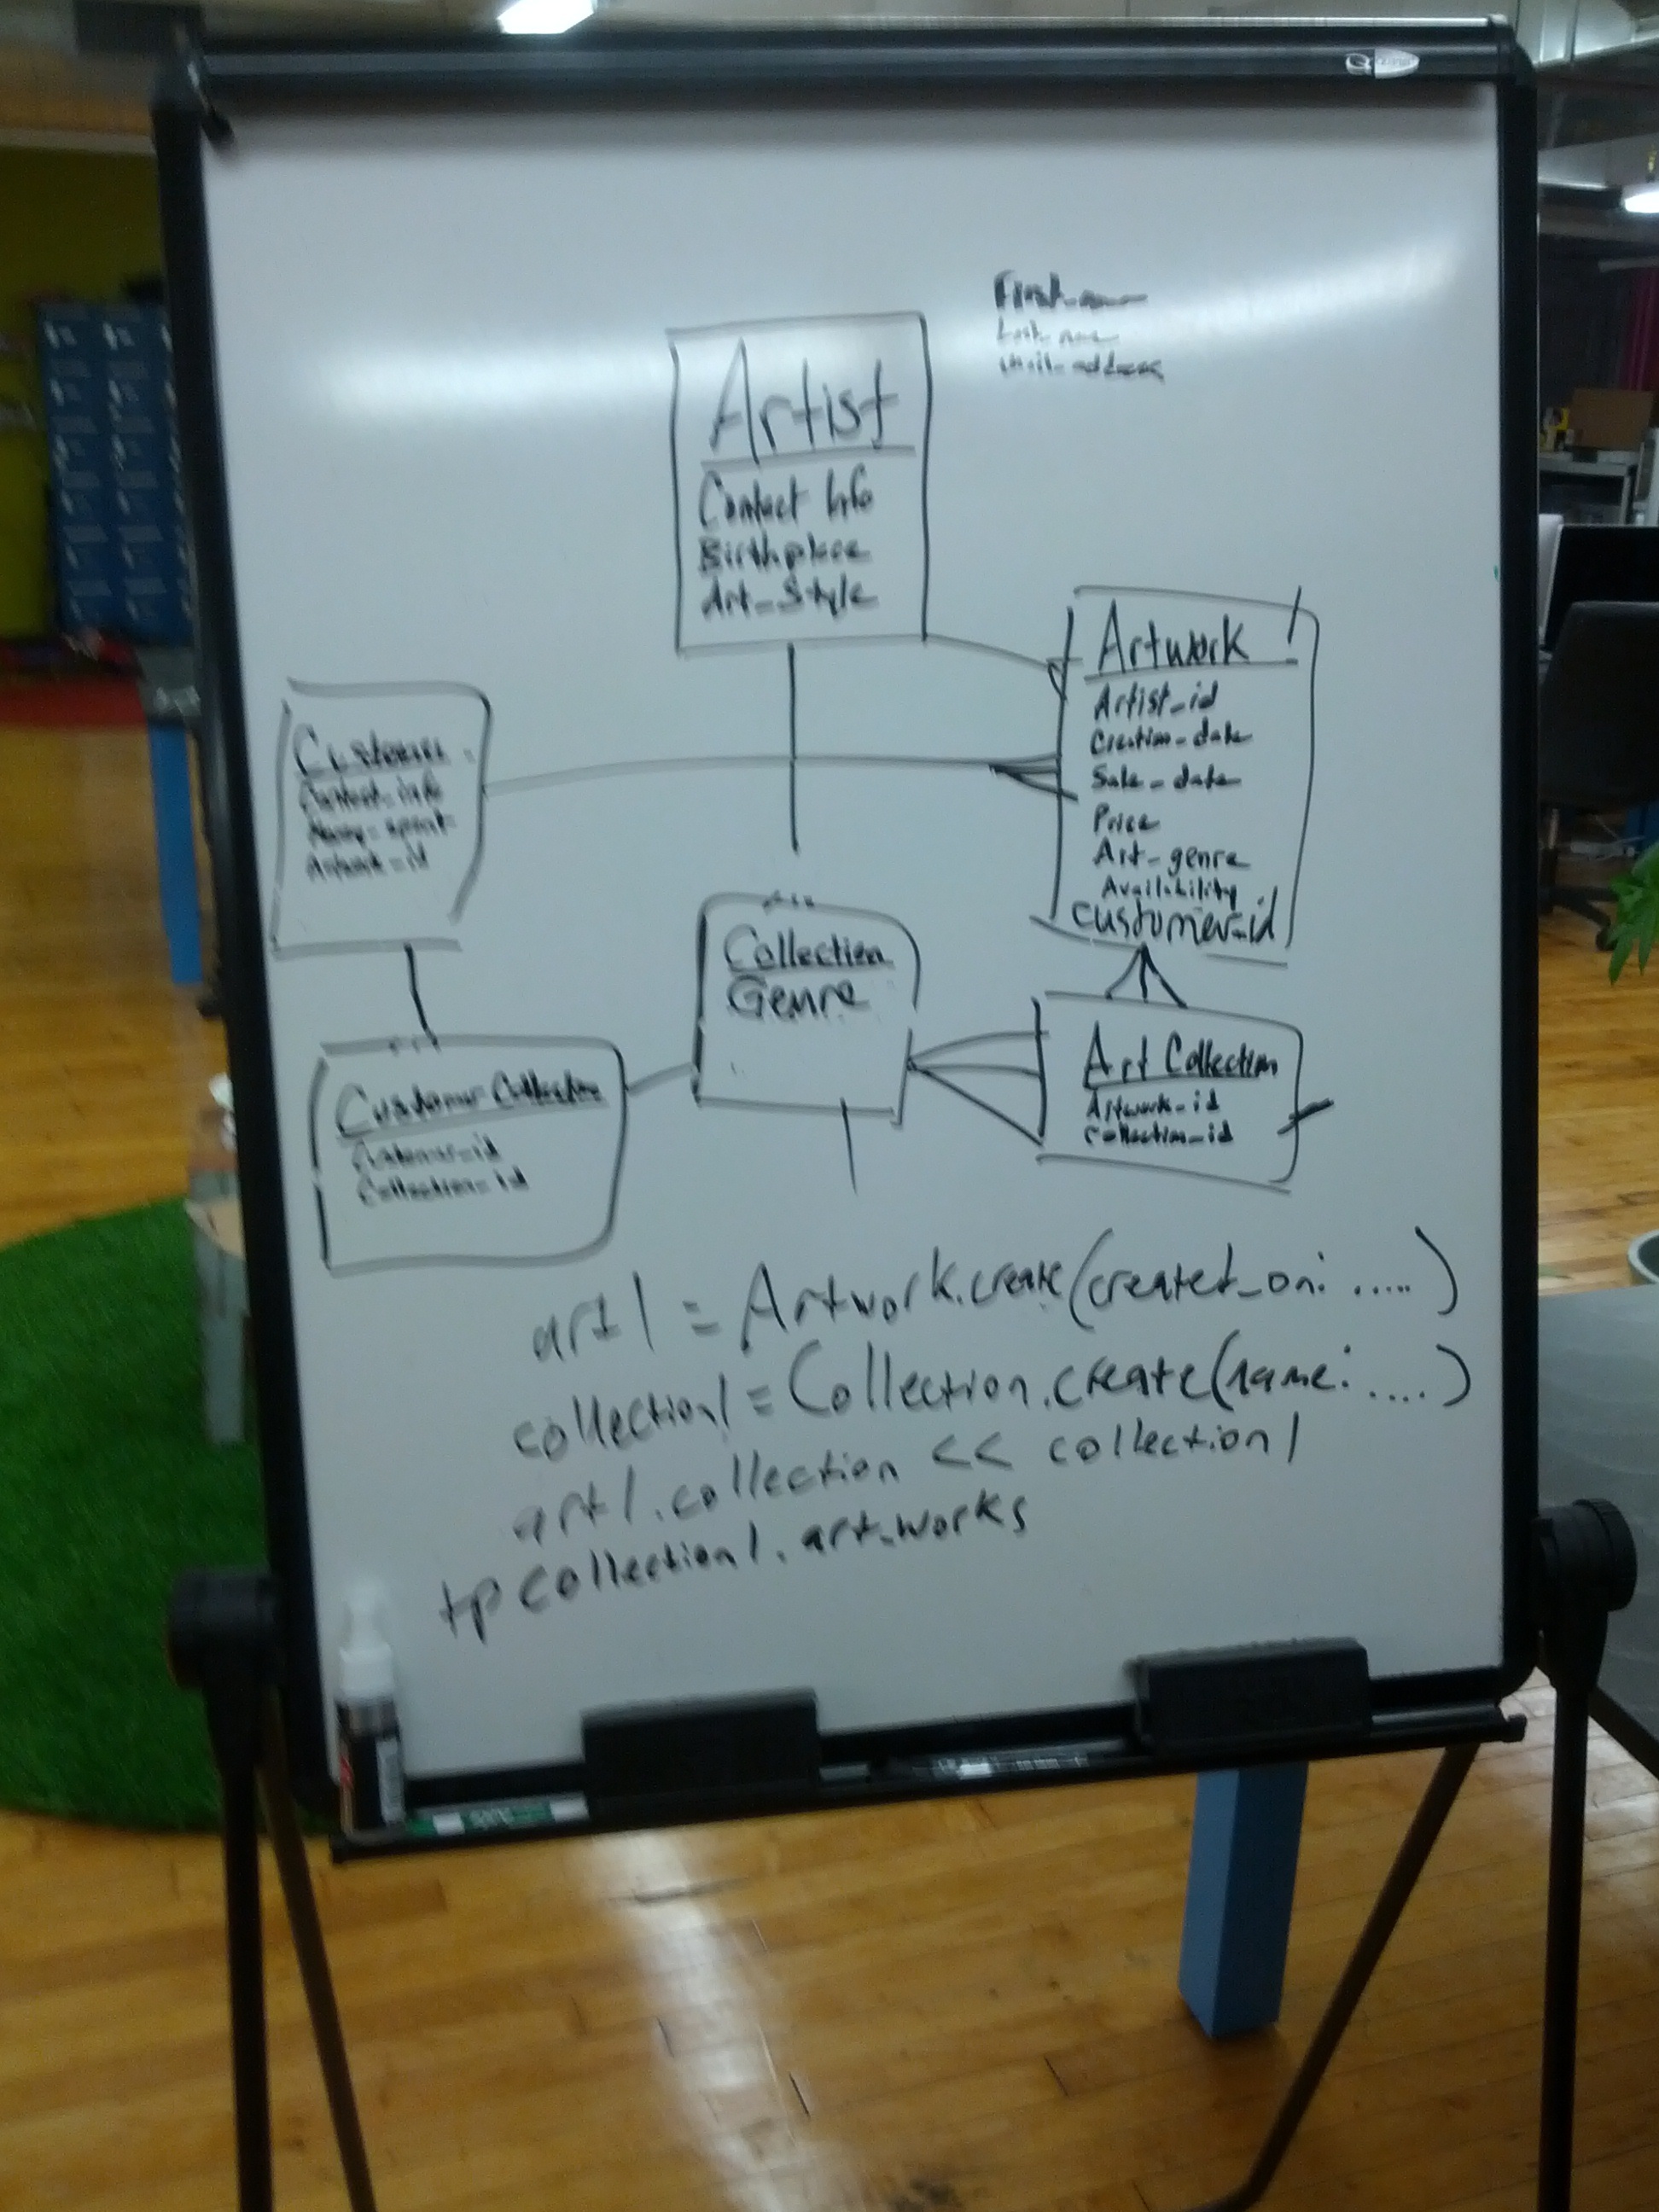 First_name
Last_name
Mail_address
Artist
Contact Info
Birthplace
Art_Style
Artwork
Artist_id
Creation_date
Sale_date
Price
Art_genre
Availibility
customer_id
Customer
Contact_info
Money_spent
Artwork_id
Collection
Genre
Art Collection
Artwork_id
Collection_id
Customer Collection
Customer_id
Collection_id
art1 = Artwork.create(created_on: .....)
collection1 = Collection.create(name: ....)
art1.collection << collection1
tp collection1.art_works